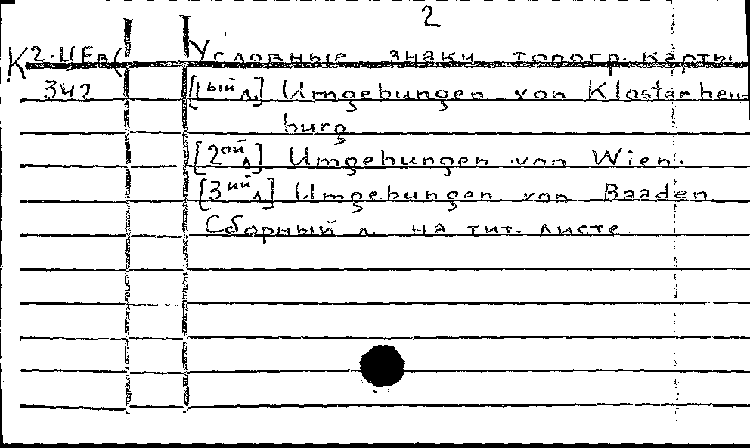 2
К 2-ЦЕв( Условные знаки топогр. карты
342 [1ый л.] Umgebungen von Klosterneu-
burg
[2ой л.] Umgebungen von Wien.
[3ий л.] Umgebungen von Baaden.
Сборный л. на тит. листе